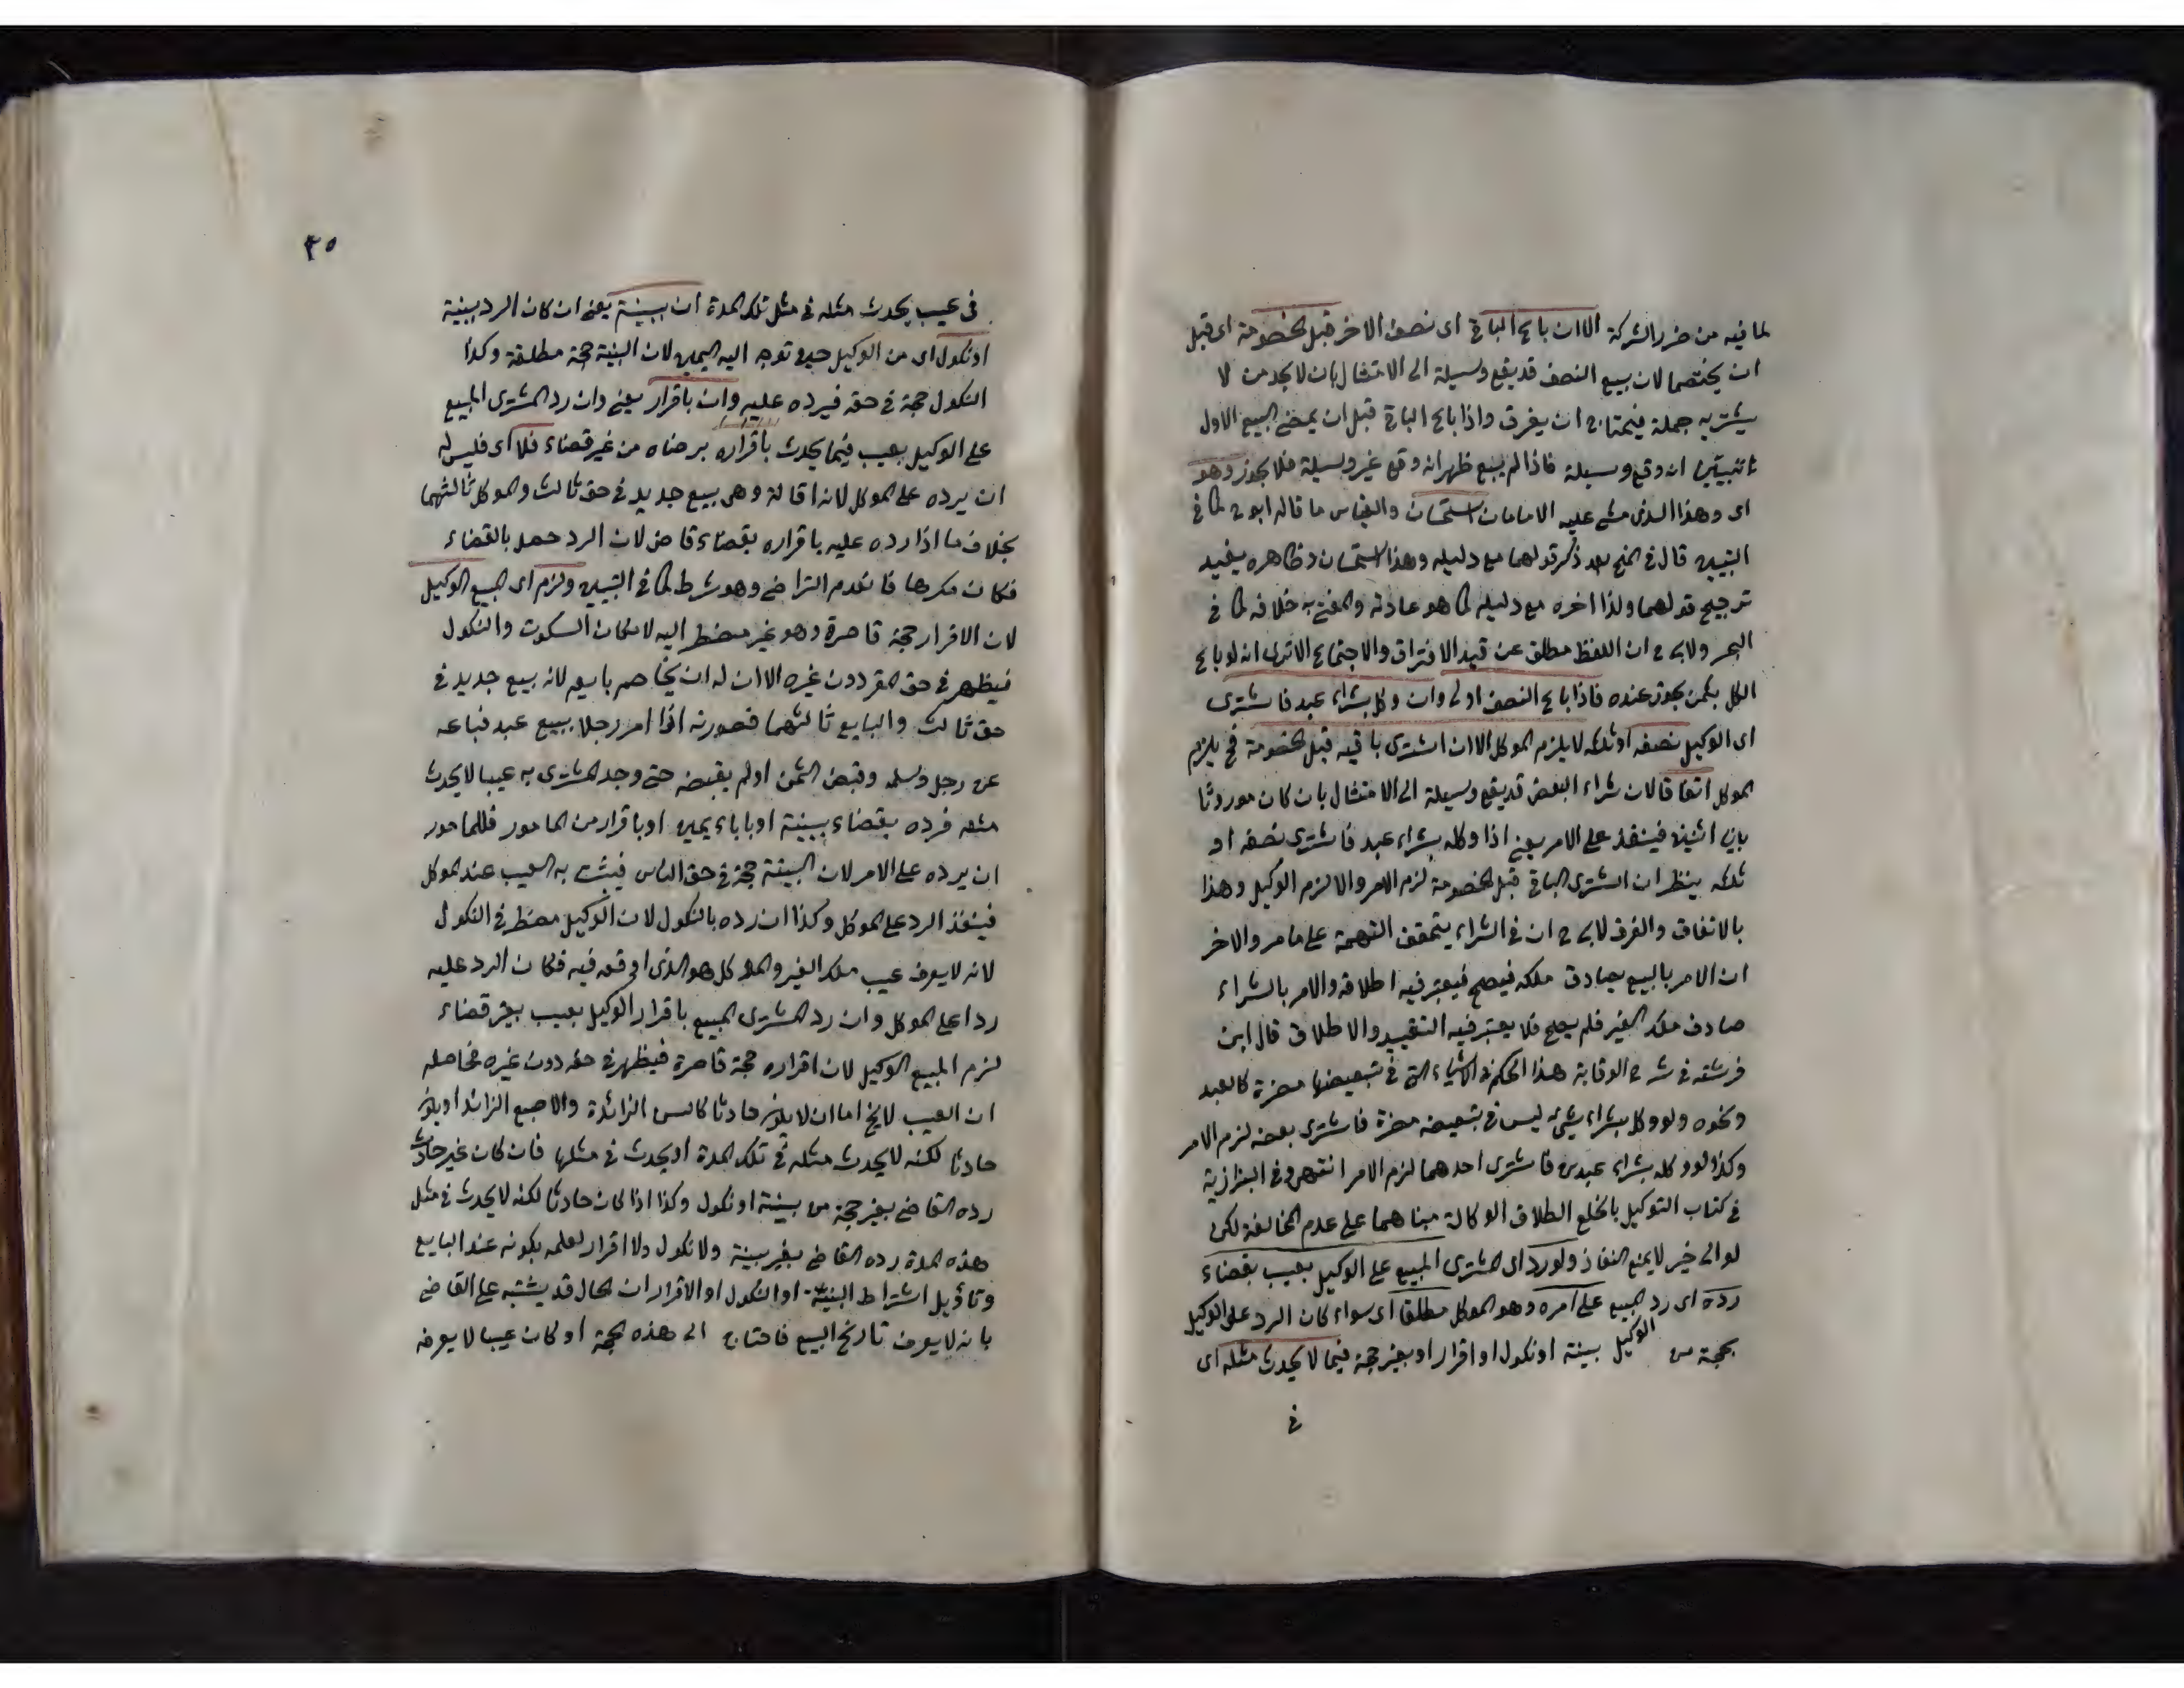 لما فيه من ضرر الشركة الا ان باع الباقي اى نصف الاخر قبل الخصومة اى قبل
ان يختصما لان بيع النصف قد يقع وسيلة الى الامتثال بان لا يجد من لا
يشتريه جملة فيحتاج ان يفرق واذا باع الباقي قبل ان يمضى البيع الاول
تبين انه وقع وسيلة فاذا لم يبع ظهر انه وقع غير وسيلة فلا يجوز وهو
اى وهذا الذى مشى عليه الامامان استحسان والقياس ما قاله ابو ح كما في
التبيين قال في المنح بعد ذكر قولهما مع دليله وهذا استحسان وظاهره يفيد
ترجيح قولهما ولذا اخره مع دليله كما هو عادته والمفتى به خلافه كما في
البحر ولابى ح ان اللفظ مطلق عن قيد الافتراق والاجتماع الا ترى انه لو باع
الكل بثمن يجوز عنده فاذا باع النصف اولى وان وكل بشراء عبد فاشترى
اى الوكيل نصفه او ثلثه لا يلزم الموكل الا ان اشترى باقيه قبل الخصومة فح يلزم
الموكل اتفاقا لان شراء البعض قد يقع وسيلة الى الامتثال بان كان موروثا
بين اثنين فينفذ على الامر يعنى اذا وكله بشراء عبد فاشترى نصفه او
ثلثه ينظر ان اشترى الباقي قبل الخصومة لزم الامر والا لزم الوكيل وهذا
بالاتفاق والفرق لابى ح ان في الشراء يتحقق التهمة على ما مر والاخر
ان الامر بالبيع يصادف ملكه فيصح فيعتبر فيه اطلاقه والامر بالشراء
صادف ملك الغير فلم يصح فلا يعتبر فيه التقييد والاطلاق قال ابن
فرشته في شرح الوقاية هذا الحكم في الاشياء التى في تبعيضها مضرة كالعبد
ونحوه ولو وكل بشراء شىء ليس في تبعيضه مضرة فاشترى بعضه لزم الامر
وكذا لو وكله بشراء عبدين فاشترى احدهما لزم الامر انتهى وفي البزازية
في كتاب التوكيل بالخلع الطلاق الوكالة مبناهما على عدم المخالفة لكن
لو الى خير لا يمنع النفاذ ولو رد اى المشترى المبيع على الوكيل بعيب بقضاء
رده اى رد المبيع على آمره وهو الموكل مطلقا اى سواء كان الرد على الوكيل
بحجة من الوكيل بينة او نكول او اقرار او بغير حجة فيما لا يحدث مثله اى
في
٣٥
في عيب يحدث مثله في مثل تلك المدة ان ببينة يعنى ان كان الرد ببينة
او نكول اى من الوكيل حين توجه اليه اليمين لان البينة حجة مطلقة وكذا
النكول حجة في حقه فيرده عليه وان باقرار يعنى وان رد المشترى المبيع
على الوكيل بعيب فيما يحدث باقراره برضاه من غير قضاء فلا اى فليس له
ان يرده على الموكل لانه اقالة وهى بيع جديد في حق ثالث والموكل ثالثهما
بخلاف ما اذا رده عليه باقراره بقضاء قاض لان الرد حصل بالقضاء
فكان مكرها فانعدم التراضى وهو شرط كما في التبيين ولزم اى المبيع الوكيل
لان الاقرار حجة قاصرة وهو غير مضطر اليه لامكان السكوت والنكول
فيظهر في حق المقر دون غيره الا ان له ان يخاصم بايعه لانه بيع جديد في
حق ثالث والبايع ثالثهما فصورته اذا امر رجلا ببيع عبد فباعه
عن رجل وسلمه وقبض الثمن او لم يقبضه حتى وجد المشترى به عيبا لا يحدث
مثله فرده بقضاء ببينة او باباء يمين او باقرار من المامور فللمامور
ان يرده على الامر لان البينة حجة في حق الناس فيثبت به العيب عند الموكل
فينفذ الرد على الموكل وكذا ان رده بالنكول لان الوكيل مضطر في النكول
لانه لا يعرف عيب ملك الغير والموكل هو الذى اوقعه فيه فكان الرد عليه
ردا على الموكل وان رد المشترى المبيع باقرار الوكيل بعيب بغير قضاء
لزم المبيع الوكيل لان اقراره حجة قاصرة فيظهر في حقه دون غيره فحاصله
ان العيب لا يخ اما ان لا يكون حادثا كالسن الزائدة والاصبع الزائد او يكون
حادثا لكنه لا يحدث مثله في تلك المدة او يحدث في مثلها فان كان غير حادث
رده القاضى بغير حجة من بينة او نكول وكذا اذا كان حادثا لكنه لا يحدث في مثل
هذه المدة رده القاضى بغير بينة ولا نكول ولا اقرار لعلمه بكونه عند البايع
وتأويل اشتراط البينة او النكول او الاقرار ان الحال قد يشتبه على القاضى
بانه لا يعرف تاريخ البيع فاحتاج الى هذه الحجة او كان عيبا لا يعرفه